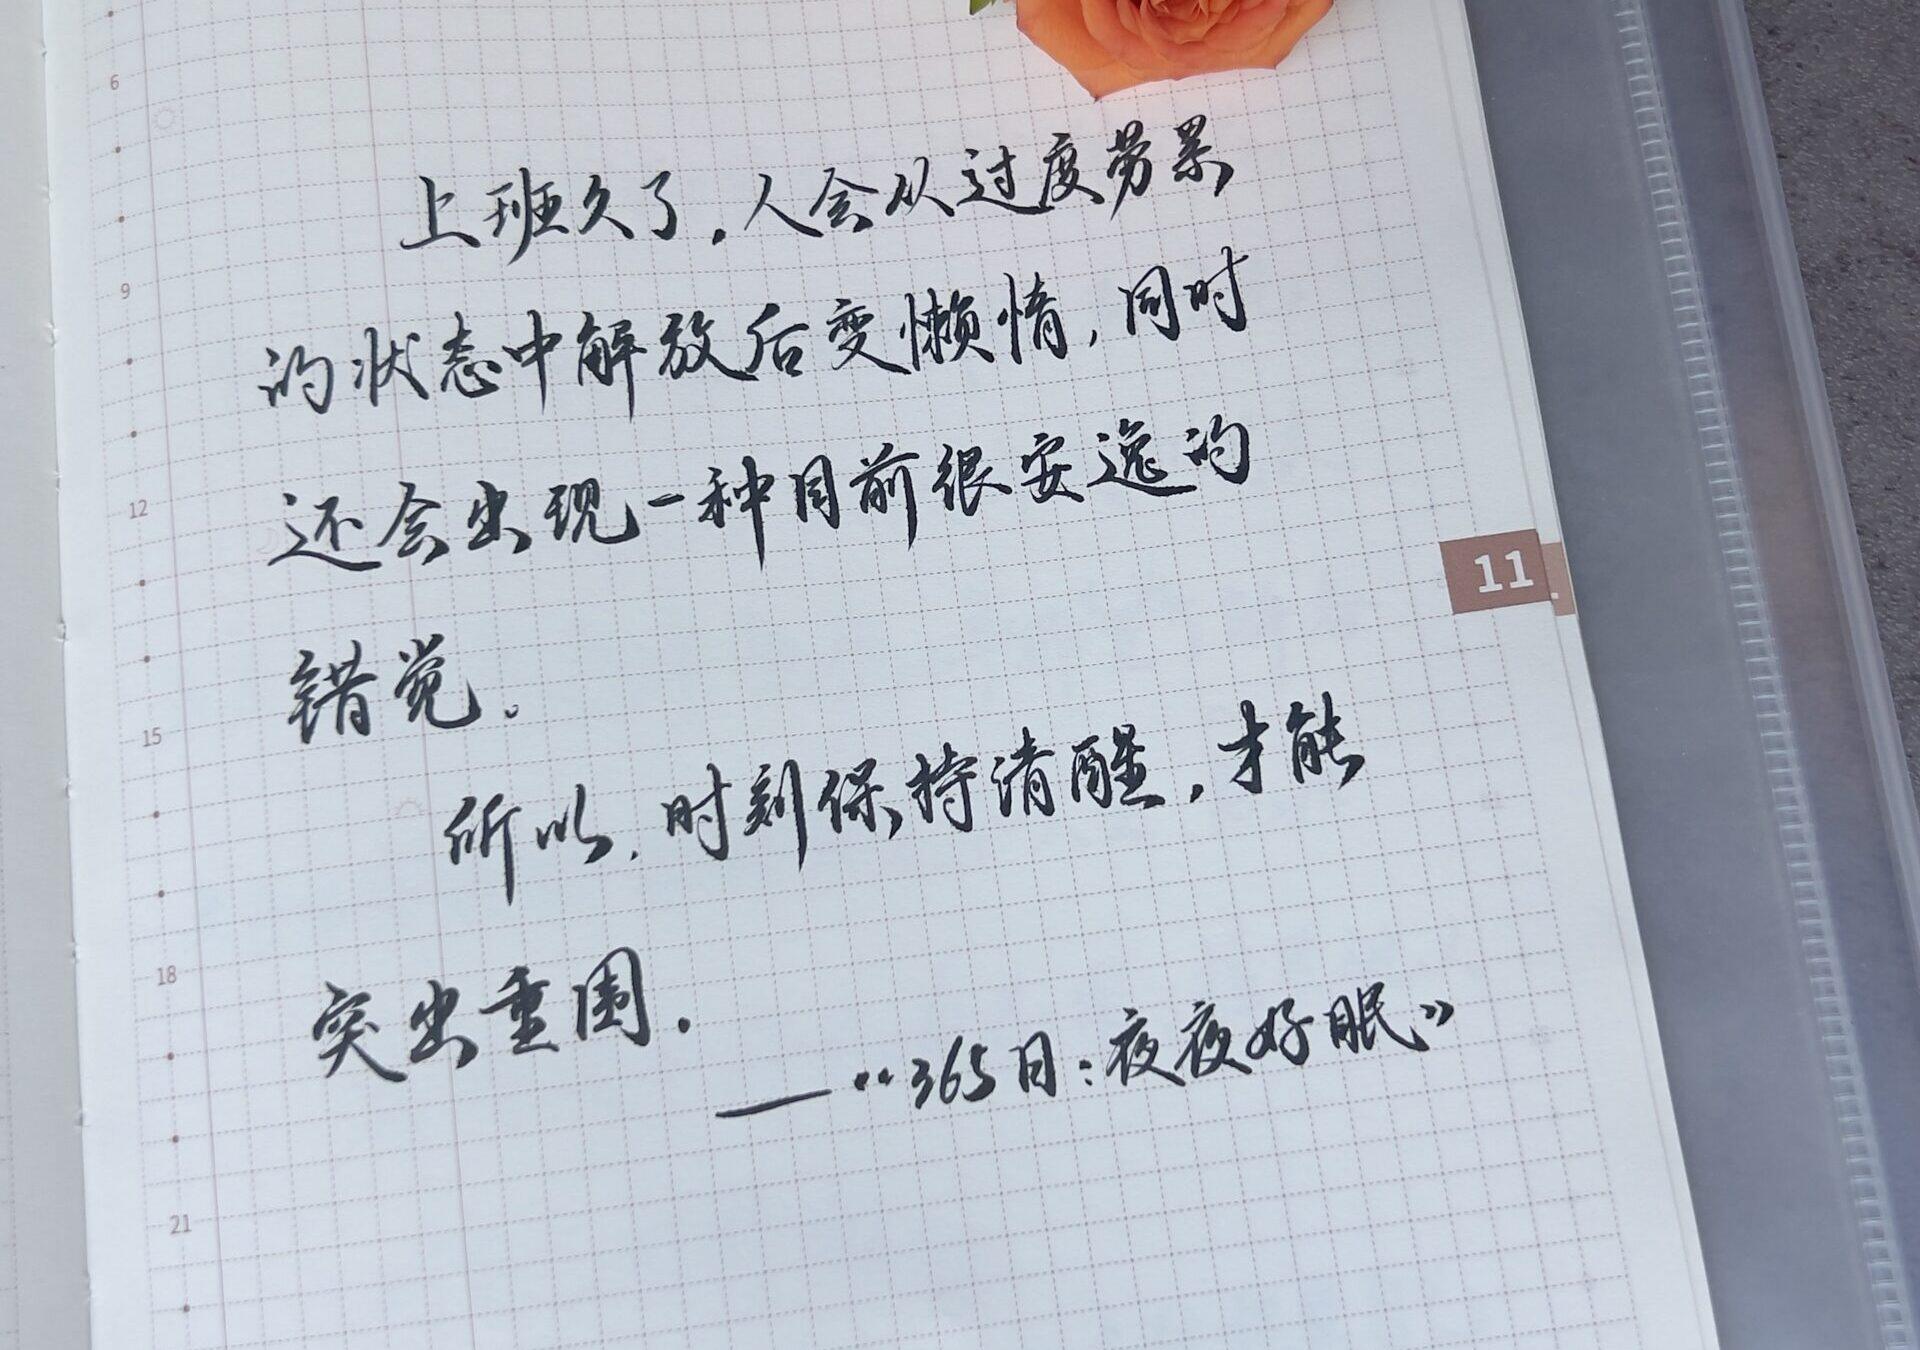 6
上班久了，人会从过度劳累
9
的状态中解放后变懒惰，同时
12
还会出现一种目前很安逸的
11
错觉。
15
所以，时刻保持清醒，才能
18
突出重围．
——“365日：夜夜好眠”
21